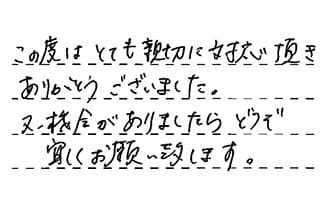 この度は とても親切に対応頂き
ありがとう ございました。
又、機会がありましたら どうぞ
宜しくお願い致します。